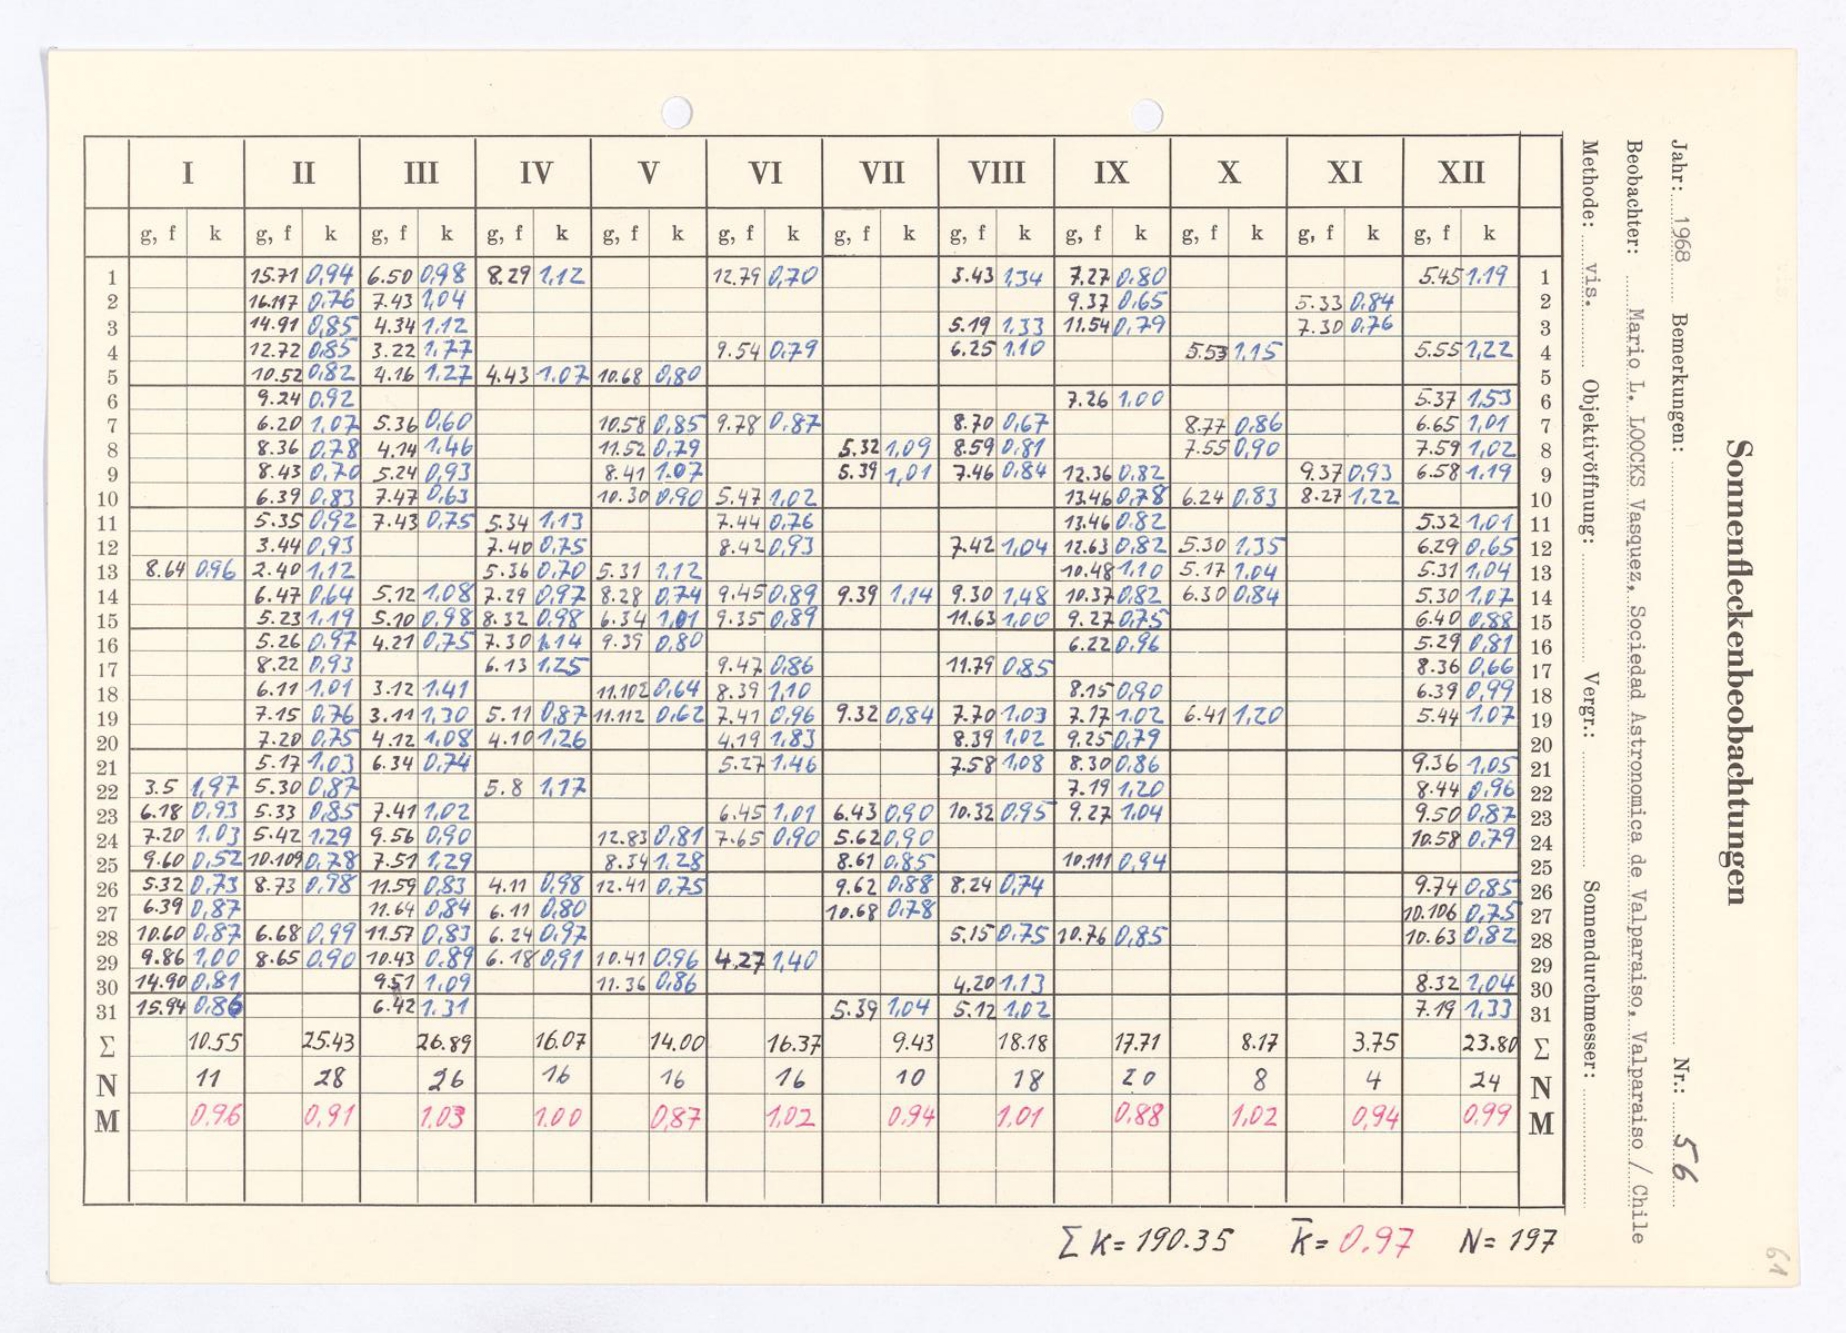 Sonnenfleckenbeobachtungen
Jahr: 1968 Bemerkungen: Nr.: 56
Beobachter: Mario L. LOOCKS Vasquez, Sociedad Astronomica de Valparaiso, Valparaiso / Chile
Methode: vis. Objektivöffnung: Vergr.: Sonnendurchmesser:
I II III IV V VI VII VIII IX X XI XII
g, f k g, f k g, f k g, f k g, f k g, f k g, f k g, f k g, f k g, f k g, f k g, f k
1 15.71 0,94 6.50 0,98 8.29 1,12 12.79 0,70 3.43 1,34 7.27 0.80 5.45 1.19 1
2 16.117 0,76 7.43 1,04 9.37 0.65 5.33 0,84 2
3 14.91 0,85 4.34 1.12 5.19 1.33 11.54 0,79 7.30 0,76 3
4 12.72 0,85 3.22 1,77 9.54 0,79 6.25 1.10 5.53 1,15 5.55 1,22 4
5 10.52 0,82 4.16 1,27 4.43 1.07 10.68 0,80 5
6 9.24 0.92 7.26 1.00 5.37 1,53 6
7 6.20 1.07 5.36 0,60 10.58 0,85 9.78 0,87 8.70 0,67 8.77 0,86 6.65 1,01 7
8 8.36 0,78 4.14 1,46 11.52 0,79 5.32 1,09 8.59 0,81 7.55 0,90 7.59 1,02 8
9 8.43 0,70 5.24 0,93 8.41 1.07 5.39 1,01 7.46 0,84 12.36 0,82 9.37 0,93 6.58 1,19 9
10 6.39 0,83 7.47 0,63 10.30 0,90 5.47 1,02 13.46 0,78 6.24 0,83 8.27 1,22 10
11 5.35 0,92 7.43 0,75 5.34 1,13 7.44 0,76 13.46 0.82 5.32 1,01 11
12 3.44 0,93 7.40 0,75 8.42 0,93 7.42 1,04 12.63 0,82 5.30 1,35 6.29 0,65 12
13 8.64 0,96 2.40 1,12 5.36 0,70 5.31 1,12 10.48 1,10 5.17 1,04 5.31 1,04 13
14 6.47 0,64 5.12 1,08 7.29 0,97 8.28 0,74 9.45 0,89 9.39 1,14 9.30 1,48 10.37 0,82 6.30 0,84 5.30 1,07 14
15 5.23 1,19 5.10 0,98 8.32 0,98 6.34 1,01 9.35 0,89 11.63 1,00 9.27 0,75 6.40 0,88 15
16 5.26 0,97 4.21 0,75 7.30 1.14 9.39 0,80 6.22 0,96 5.29 0,81 16
17 8.22 0,93 6.13 1,25 9.47 0,86 11.79 0,85 8.36 0,66 17
18 6.11 1,01 3.12 1,41 11.102 0,64 8.39 1,10 8.15 0,90 6.39 0,99 18
19 7.15 0,76 3.11 1,30 5.11 0,87 11.112 0,62 7.41 0,96 9.32 0,84 7.70 1,03 7.17 1.02 6.41 1,20 5.44 1,07 19
20 7.20 0,75 4.12 1,08 4.10 1,26 4.19 1,83 8.39 1,02 9.25 0,79 20
21 5.17 1,03 6.34 0,74 5.27 1.46 7.58 1,08 8.30 0,86 9.36 1,05 21
22 3.5 1,97 5.30 0,87 5.8 1,17 7.19 1,20 8.44 0,96 22
23 6.18 0,93 5.33 0,85 7.41 1.02 6.45 1,01 6.43 0,90 10.32 0,95 9.27 1,04 9.50 0,87 23
24 7.20 1.03 5.42 1,29 9.56 0,90 12.83 0,81 7.65 0,90 5.62 0,90 10.58 0,79 24
25 9.60 0,52 10.109 0,78 7.51 1,29 8.34 1,28 8.61 0,85 10.111 0,94 25
26 5.32 0,73 8.73 0,98 11.59 0,83 4.11 0,98 12.41 0,75 9.62 0.88 8.24 0,74 9.74 0,85 26
27 6.39 0,87 11.64 0,84 6.11 0,80 10.68 0.78 10.106 0,75 27
28 10.60 0,87 6.68 0,99 11.57 0,83 6.24 0,97 5.15 0.75 10.76 0,85 10.63 0,82 28
29 9.86 1,00 8.65 0.90 10.43 0.89 6.18 0,91 10.41 0.96 4.27 1,40 29
30 14.90 0,81 9.51 1,09 11.36 0,86 4.20 1.13 8.32 1,04 30
31 15.94 0,86 6.42 1.31 5.39 1,04 5.12 1,02 7.19 1,33 31
Σ 10.55 25.43 26.89 16.07 14.00 16.37 9.43 18.18 17.71 8.17 3.75 23.80 Σ
N 11 28 26 16 16 16 10 18 20 8 4 24 N
M 0.96 0,91 1.03 1.00 0,87 1,02 0.94 1.01 0.88 1,02 0,94 0.99 M
Σ k = 190.35 k̅ = 0.97 N = 197
61